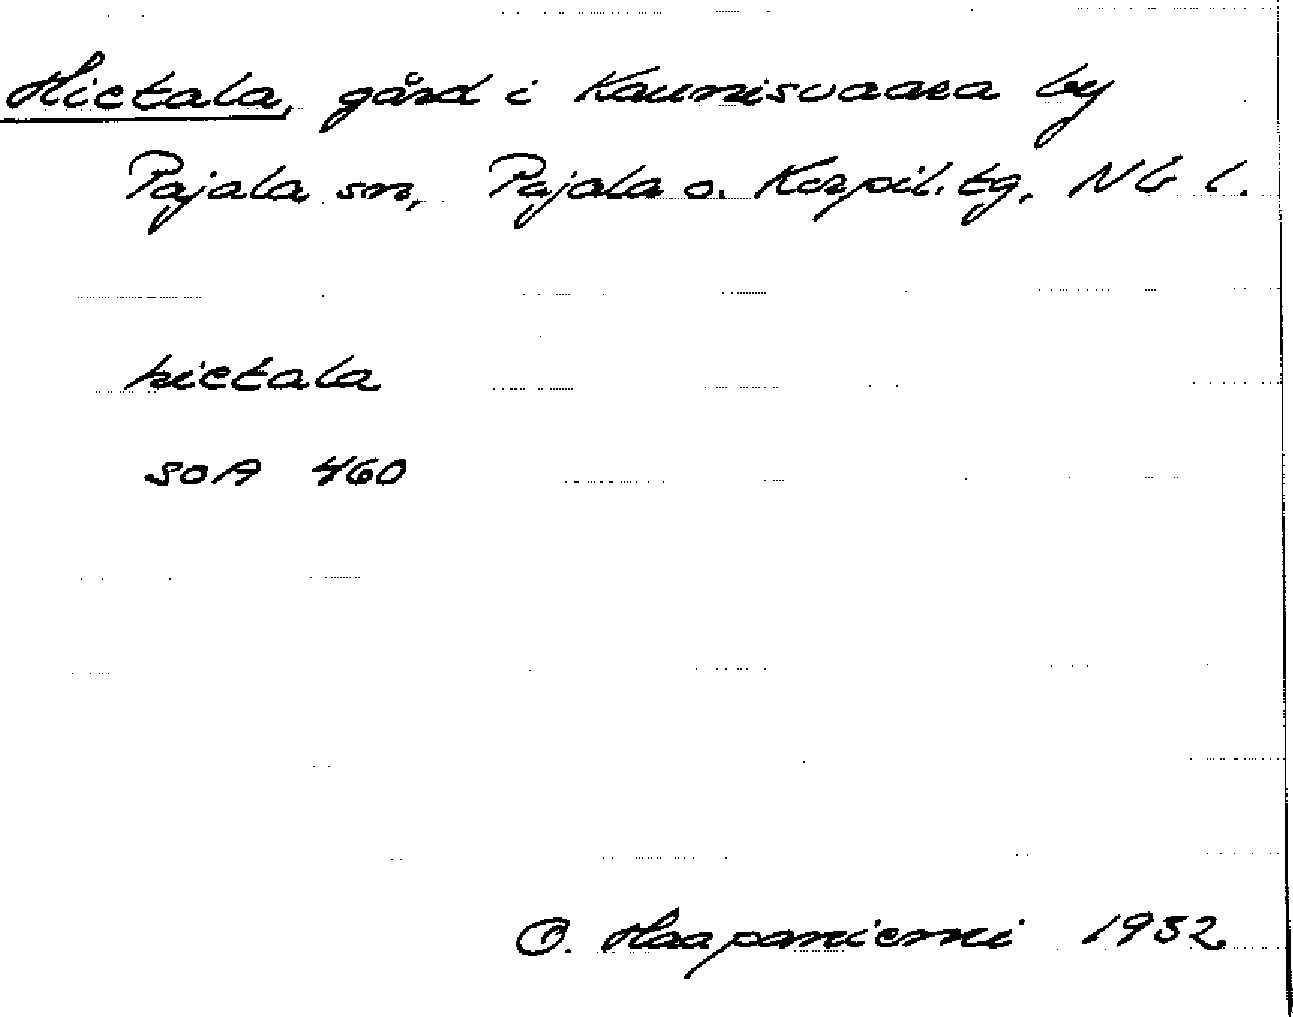 Hietala, gård i Kaunisvaara by
Pajala sn, Pajala o. Korpil. tg, Nb l.
hietala
SOA 460
O. Haapaniemi 1932